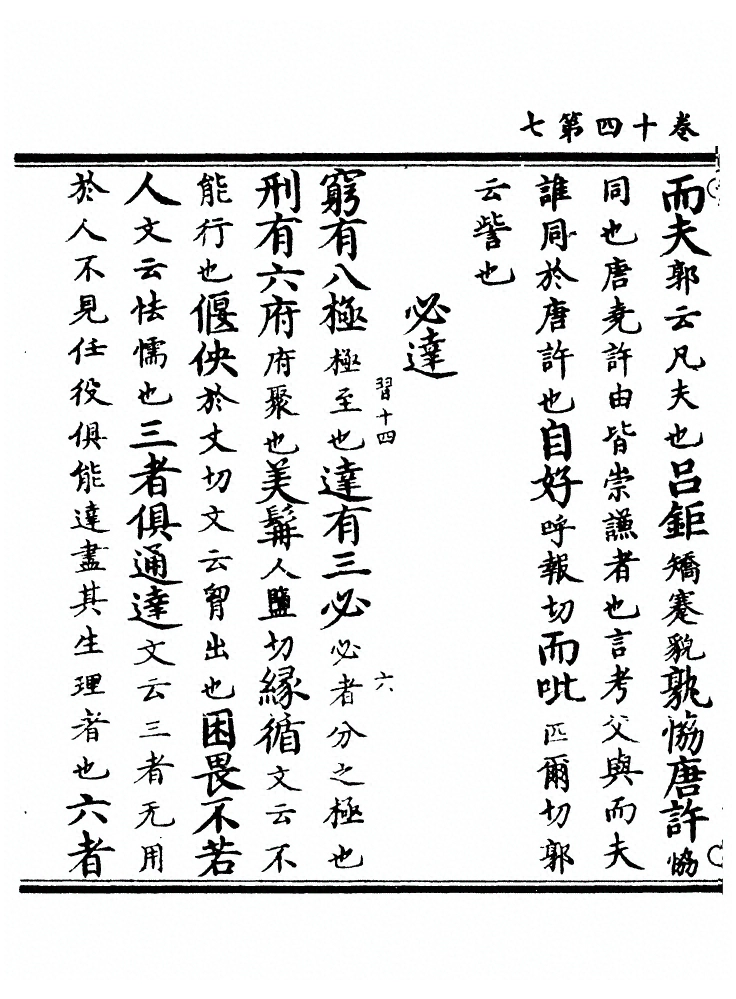 卷十四第七
而夫郭云凡夫也呂鉅矯蹇貌孰恊唐許恊
同也唐堯許由皆崇謙者也言考父與而夫
誰同於唐許也自好呼報切而吡匹爾切郭
云訾也
必達
習十四
六
窮有八極極至也達有三必必者分之極也
刑有六府府聚也美髯人鹽切緣循文云不
能行也偃佒於丈切文云胷出也困畏不若
人文云怯懦也三者俱通達文云三者无用
於人不見任役俱能達盡其生理者也六者